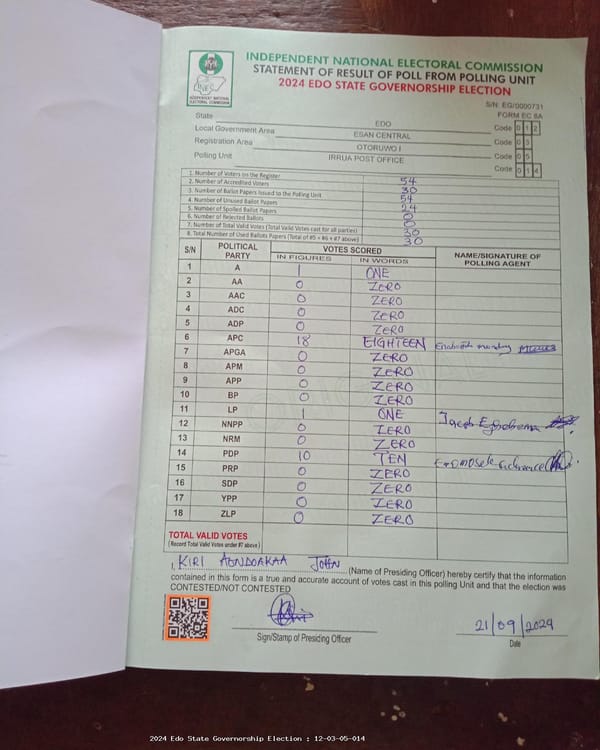 INDEPENDENT NATIONAL ELECTORAL COMMISSION
STATEMENT OF RESULT OF POLL FROM POLLING UNIT
2024 EDO STATE GOVERNORSHIP ELECTION
INEC
INDEPENDENT NATIONAL ELECTORAL COMMISSION
S/N: EG/0000731
FORM EC 8A
State EDO Code 1 2
Local Government Area ESAN CENTRAL Code 0 3
Registration Area OTORUWO I Code 0 5
Polling Unit IRRUA POST OFFICE Code 0 1 4
1. Number of Voters on the Register 54
2. Number of Accredited Voters 30
3. Number of Ballot Papers Issued to the Polling Unit 54
4. Number of Unused Ballot Papers 24
5. Number of Spoiled Ballot Papers 0
6. Number of Rejected Ballots 0
7. Number of Total Valid Votes (Total Valid Votes cast for all parties) 30
8. Total Number of Used Ballots Papers (Total of #5 + #6 + #7 above) 30
S/N POLITICAL PARTY VOTES SCORED NAME/SIGNATURE OF POLLING AGENT
IN FIGURES IN WORDS
1 A 1 ONE
2 AA 0 ZERO
3 AAC 0 ZERO
4 ADC 0 ZERO
5 ADP 0 ZERO
6 APC 18 EIGHTEEN
7 APGA 0 ZERO
8 APM 0 ZERO
9 APP 0 ZERO
10 BP 0 ZERO
11 LP 1 ONE Jacob
12 NNPP 0 ZERO
13 NRM 0 ZERO
14 PDP 10 TEN
15 PRP 0 ZERO
16 SDP 0 ZERO
17 YPP 0 ZERO
18 ZLP 0 ZERO
TOTAL VALID VOTES
(Record Total Valid Votes under #7 above)
I, KIRI AONDOAKAA JOHN (Name of Presiding Officer) hereby certify that the information
contained in this form is a true and accurate account of votes cast in this polling Unit and that the election was
CONTESTED/NOT CONTESTED
Sign/Stamp of Presiding Officer
21/09/2024
Date
2024 Edo State Governorship Election : 12-03-05-014